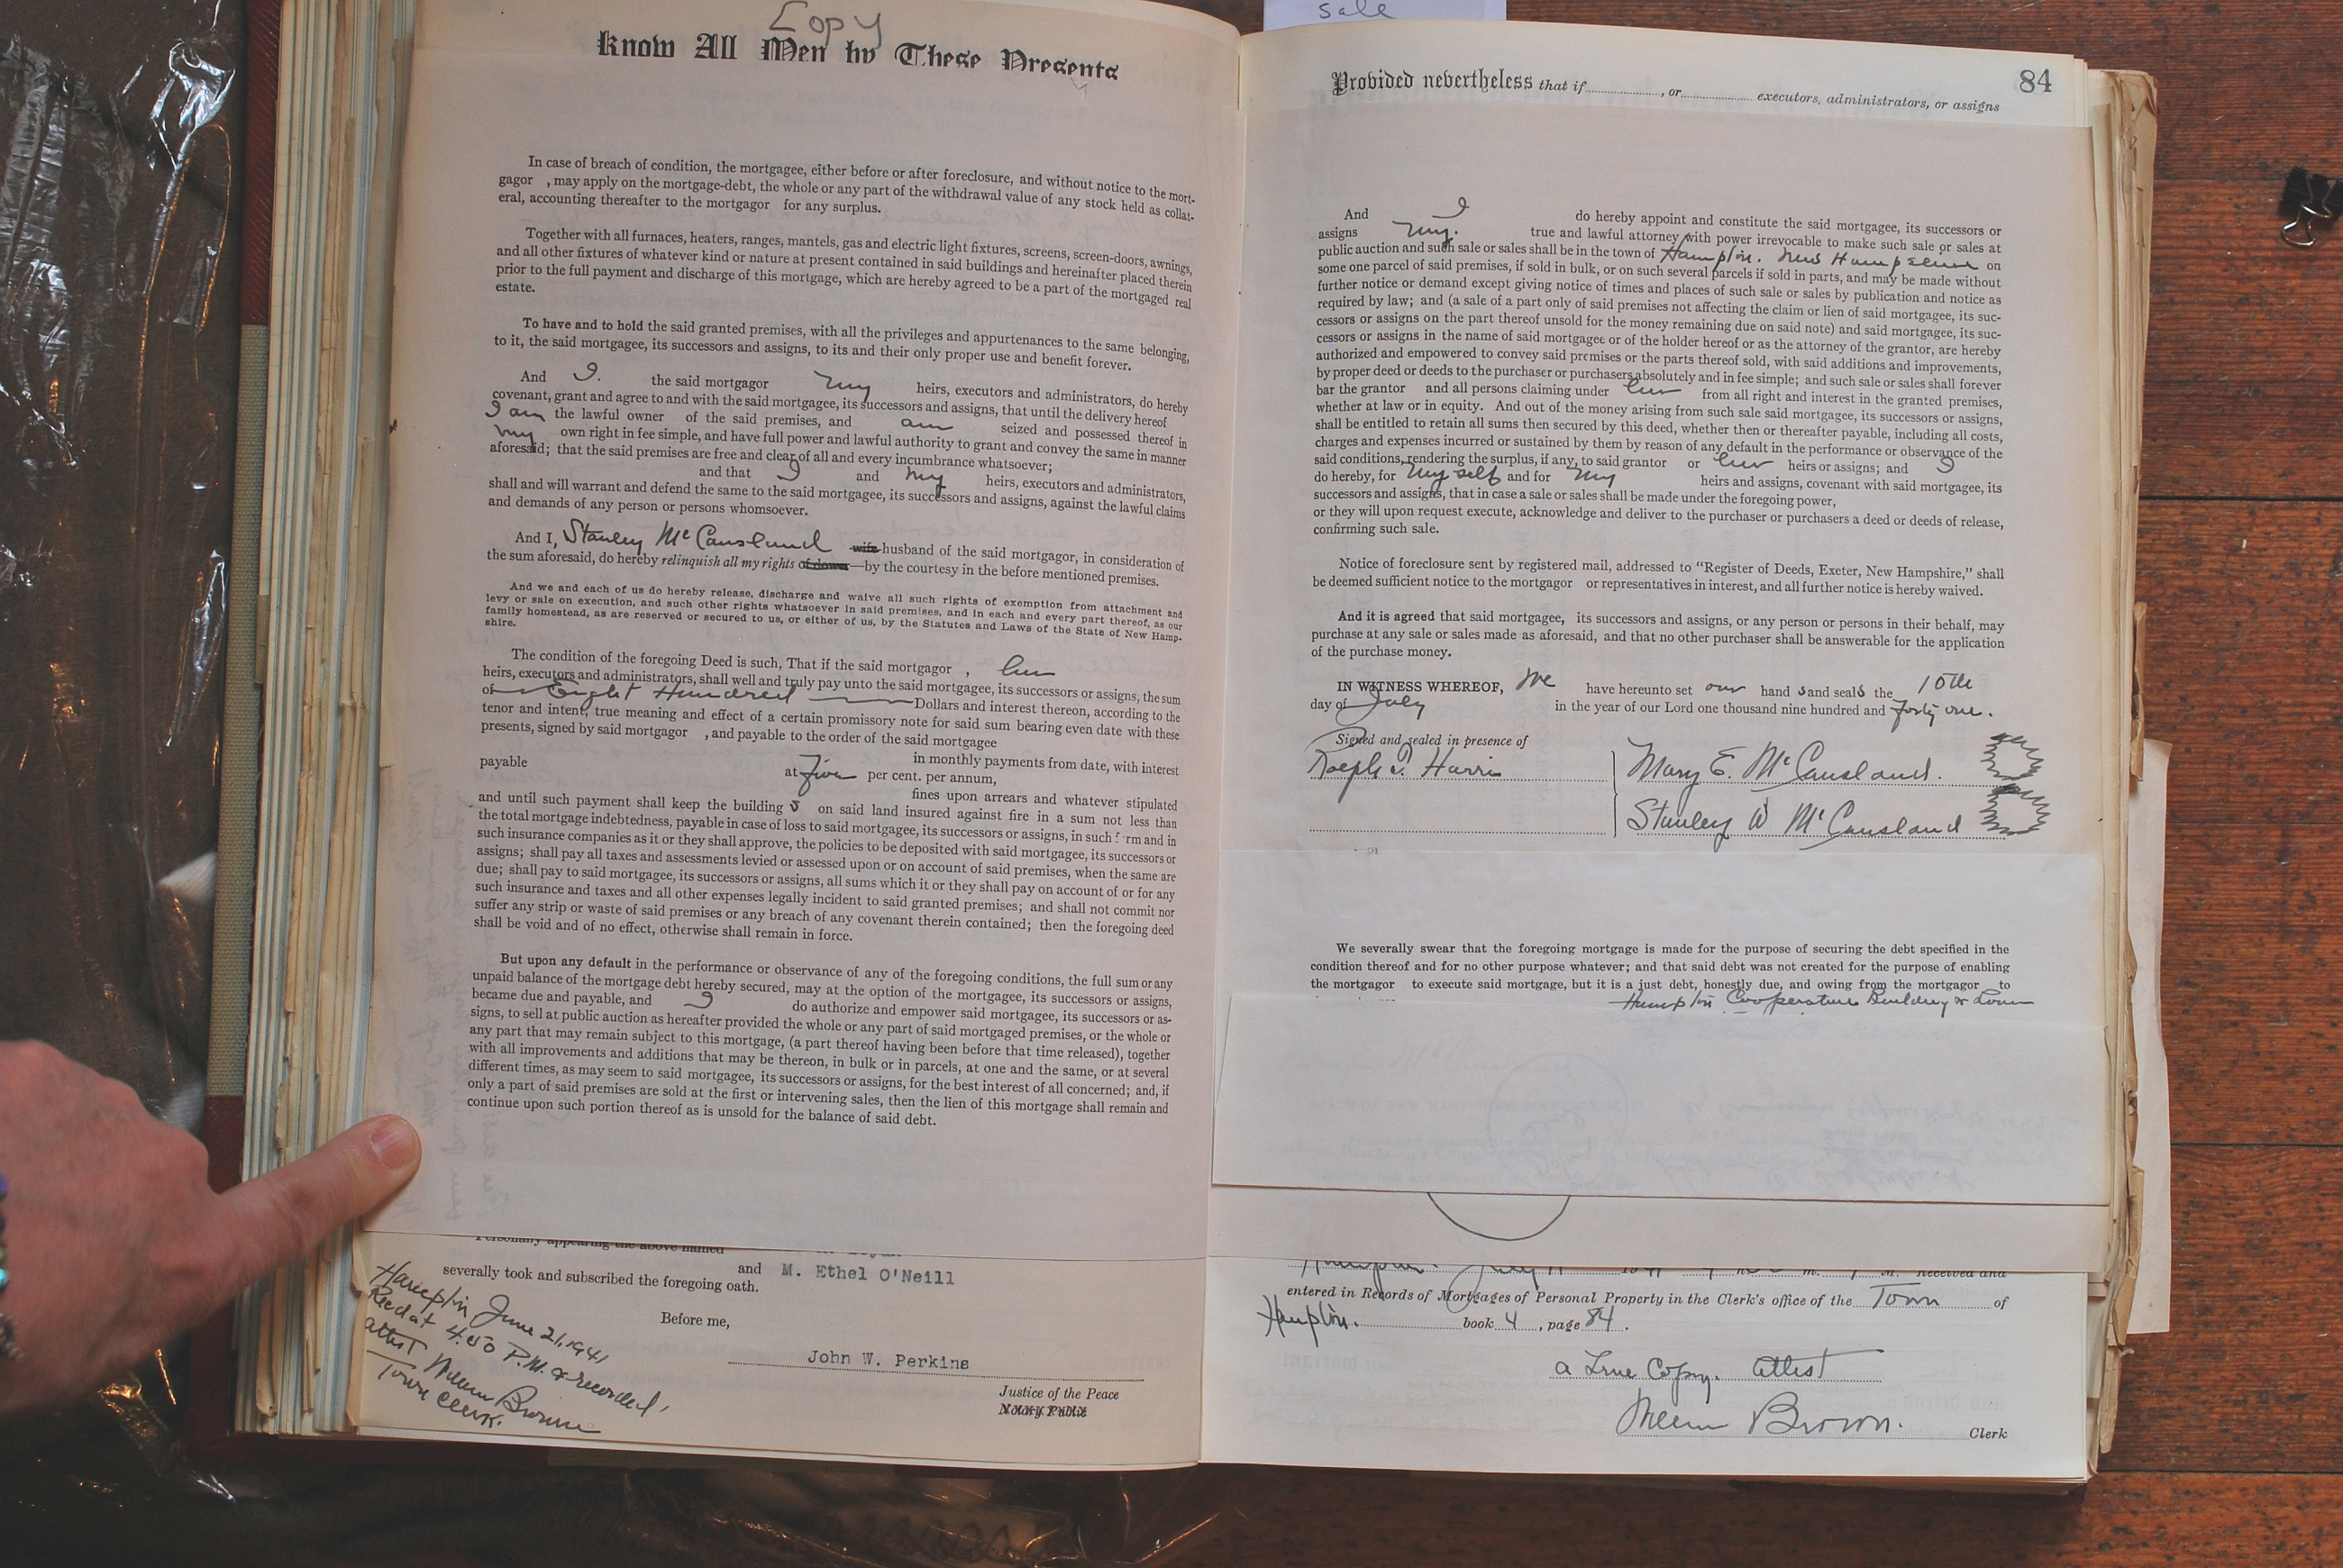 Copy
Know All Men by These Presents
In case of breach of condition, the mortgagee, either before or after foreclosure, and without notice to the mort-
gagor , may apply on the mortgage-debt, the whole or any part of the withdrawal value of any stock held as collat-
eral, accounting thereafter to the mortgagor for any surplus.
Together with all furnaces, heaters, ranges, mantels, gas and electric light fixtures, screens, screen-doors, awnings,
and all other fixtures of whatever kind or nature at present contained in said buildings and hereinafter placed therein
prior to the full payment and discharge of this mortgage, which are hereby agreed to be a part of the mortgaged real
estate.
To have and to hold the said granted premises, with all the privileges and appurtenances to the same belonging,
to it, the said mortgagee, its successors and assigns, to its and their only proper use and benefit forever.
And I. the said mortgagor my heirs, executors and administrators, do hereby
covenant, grant and agree to and with the said mortgagee, its successors and assigns, that until the delivery hereof
I am the lawful owner of the said premises, and am seized and possessed thereof in
my own right in fee simple, and have full power and lawful authority to grant and convey the same in manner
aforesaid; that the said premises are free and clear of all and every incumbrance whatsoever;
and that I and my heirs, executors and administrators,
shall and will warrant and defend the same to the said mortgagee, its successors and assigns, against the lawful claims
and demands of any person or persons whomsoever.
And I, Stanley McCausland wife husband of the said mortgagor, in consideration of
the sum aforesaid, do hereby relinquish all my rights of dower—by the courtesy in the before mentioned premises.
And we and each of us do hereby release, discharge and waive all such rights of exemption from attachment and
levy or sale on execution, and such other rights whatsoever in said premises, and in each and every part thereof, as our
family homestead, as are reserved or secured to us, or either of us, by the Statutes and Laws of the State of New Hamp-
shire.
The condition of the foregoing Deed is such, That if the said mortgagor , her
heirs, executors and administrators, shall well and truly pay unto the said mortgagee, its successors or assigns, the sum
of Eight Hundred Dollars and interest thereon, according to the
tenor and intent, true meaning and effect of a certain promissory note for said sum bearing even date with these
presents, signed by said mortgagor , and payable to the order of the said mortgagee
payable in monthly payments from date, with interest
at Five per cent. per annum,
fines upon arrears and whatever stipulated
and until such payment shall keep the building s on said land insured against fire in a sum not less than
the total mortgage indebtedness, payable in case of loss to said mortgagee, its successors or assigns, in such f rm and in
such insurance companies as it or they shall approve, the policies to be deposited with said mortgagee, its successors or
assigns; shall pay all taxes and assessments levied or assessed upon or on account of said premises, when the same are
due; shall pay to said mortgagee, its successors or assigns, all sums which it or they shall pay on account of or for any
such insurance and taxes and all other expenses legally incident to said granted premises; and shall not commit nor
suffer any strip or waste of said premises or any breach of any covenant therein contained; then the foregoing deed
shall be void and of no effect, otherwise shall remain in force.
But upon any default in the performance or observance of any of the foregoing conditions, the full sum or any
unpaid balance of the mortgage debt hereby secured, may at the option of the mortgagee, its successors or assigns,
became due and payable, and I do authorize and empower said mortgagee, its successors or as-
signs, to sell at public auction as hereafter provided the whole or any part of said mortgaged premises, or the whole or
any part that may remain subject to this mortgage, (a part thereof having been before that time released), together
with all improvements and additions that may be thereon, in bulk or in parcels, at one and the same, or at several
different times, as may seem to said mortgagee, its successors or assigns, for the best interest of all concerned; and, if
only a part of said premises are sold at the first or intervening sales, then the lien of this mortgage shall remain and
continue upon such portion thereof as is unsold for the balance of said debt.
Personally appearing the above named
and M. Ethel O'Neill
severally took and subscribed the foregoing oath.
Before me,
John W. Perkins
Justice of the Peace
Notary Public
Hampton June 21, 1941
Recd at 4:50 P.M. & recorded,
attest William Brown
Town Clerk.
sale
84
Provided nevertheless that if , or executors, administrators, or assigns
And I do hereby appoint and constitute the said mortgagee, its successors or
assigns my. true and lawful attorney with power irrevocable to make such sale or sales at
public auction and such sale or sales shall be in the town of Hampton. New Hampshire on
some one parcel of said premises, if sold in bulk, or on such several parcels if sold in parts, and may be made without
further notice or demand except giving notice of times and places of such sale or sales by publication and notice as
required by law; and (a sale of a part only of said premises not affecting the claim or lien of said mortgagee, its suc-
cessors or assigns on the part thereof unsold for the money remaining due on said note) and said mortgagee, its suc-
cessors or assigns in the name of said mortgagee or of the holder hereof or as the attorney of the grantor, are hereby
authorized and empowered to convey said premises or the parts thereof sold, with said additions and improvements,
by proper deed or deeds to the purchaser or purchasers absolutely and in fee simple; and such sale or sales shall forever
bar the grantor and all persons claiming under her from all right and interest in the granted premises,
whether at law or in equity. And out of the money arising from such sale said mortgagee, its successors or assigns,
shall be entitled to retain all sums then secured by this deed, whether then or thereafter payable, including all costs,
charges and expenses incurred or sustained by them by reason of any default in the performance or observance of the
said conditions, rendering the surplus, if any, to said grantor or her heirs or assigns; and I
do hereby, for my self and for my heirs and assigns, covenant with said mortgagee, its
successors and assigns, that in case a sale or sales shall be made under the foregoing power,
or they will upon request execute, acknowledge and deliver to the purchaser or purchasers a deed or deeds of release,
confirming such sale.
Notice of foreclosure sent by registered mail, addressed to "Register of Deeds, Exeter, New Hampshire," shall
be deemed sufficient notice to the mortgagor or representatives in interest, and all further notice is hereby waived.
And it is agreed that said mortgagee, its successors and assigns, or any person or persons in their behalf, may
purchase at any sale or sales made as aforesaid, and that no other purchaser shall be answerable for the application
of the purchase money.
IN WITNESS WHEREOF, We have hereunto set our hand s and seals the 10th
day of July in the year of our Lord one thousand nine hundred and forty one.
Signed and sealed in presence of
Ralph T. Harris
Mary E. McCausland.
Stanley W McCausland
We severally swear that the foregoing mortgage is made for the purpose of securing the debt specified in the
condition thereof and for no other purpose whatever; and that said debt was not created for the purpose of enabling
the mortgagor to execute said mortgage, but it is a just debt, honestly due, and owing from the mortgagor to
Hampton Cooperative Building & Loan
Hampton. July 11 1941 Received and
entered in Records of Mortgages of Personal Property in the Clerk's office of the Town of
Hampton. book 4 , page 84 .
a True Copy. attest
William Brown.
Clerk